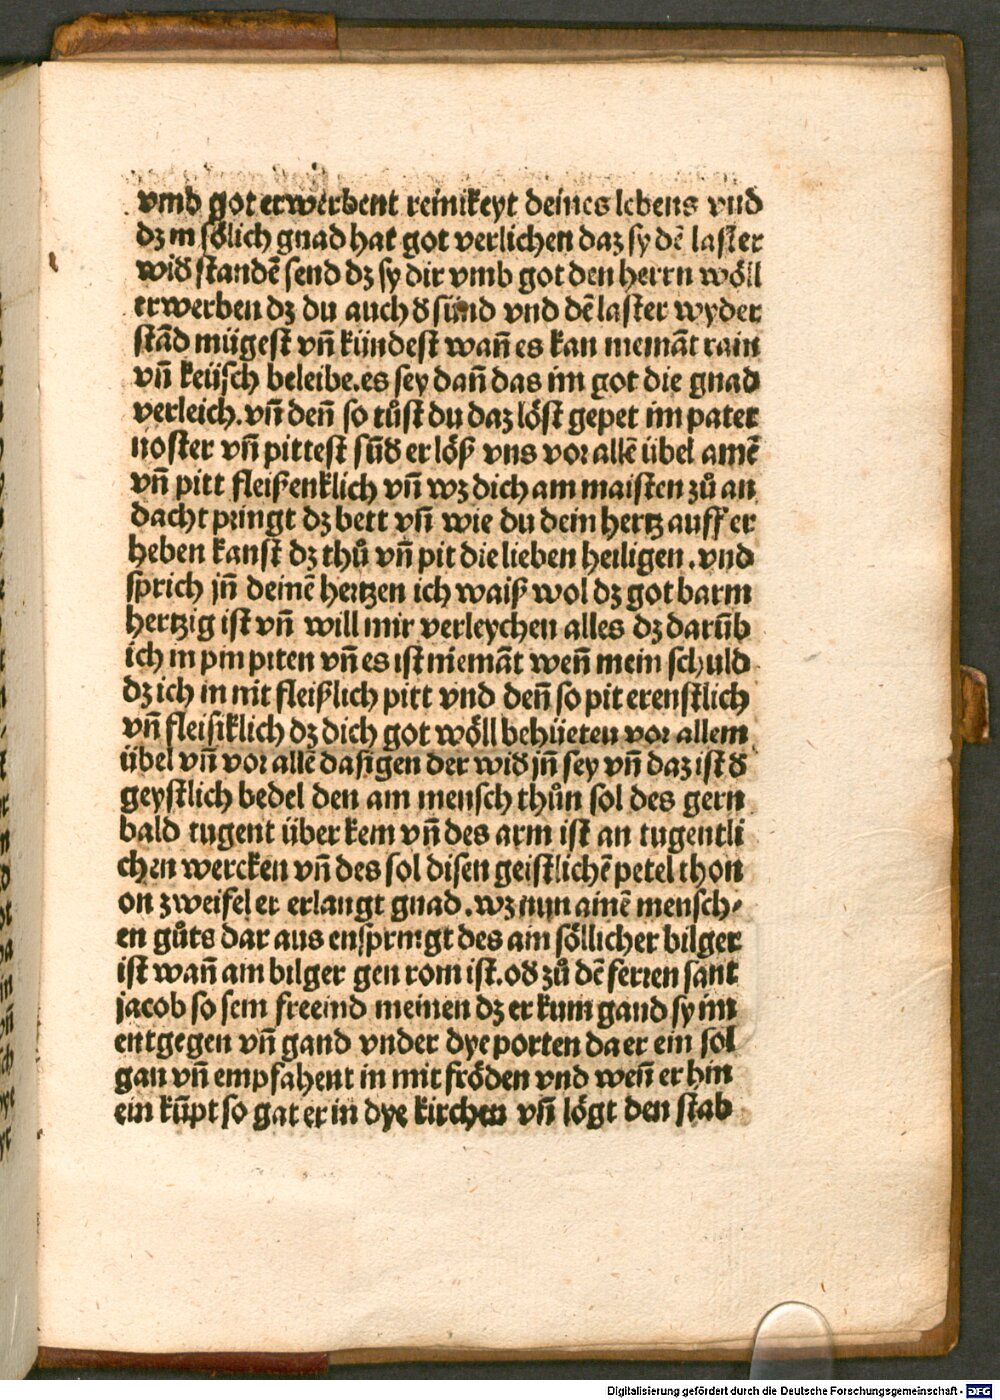 vmb got erwerbent reinikeyt deines lebens vnd
dz in sölich gnad hat got verlichen daz sy dē laster
wid̕ standē send dz sy dir vmb got den herrn wöll
erwerben dz du auch d̕ sünd vnd dē laster wyder
stād mügest vn̄ kündest wan̄ es kan niemāt rain
vn̄ keüsch beleibe. es sey dan̄ das im got die gnad
verleich. vn̄ den̄ so tůst du daz löst gepet im pater
noster vn̄ pittest sūd̕ erlöß vns vor allē übel amē
vn̄ pitt fleißenklich vn̄ wz dich am maisten zů an
dacht pringt dz bett vn̄ wie du dein hertz auff er
heben kanst dz thů vn̄ pit die lieben heiligen. vnd
sprich jn̄ deinē hertzen ich waiß wol dz got barm
hertzig ist vn̄ will mir verleychen alles dz darūb
ich in pin piten vn̄ es ist niemāt wen̄ mein schuld
dz ich in nit fleißlich pitt vnd den̄ so pit erenstlich
vn̄ fleisiklich dz dich got wöll behüeten vor allem
übel vn̄ vor allē dasigen der wid̕ jn̄ sey vn̄ daz ist d̕
geystlich bedel den ain mensch thůn sol des gern
bald tugent über kem vn̄ des arm ist an tugentli
chen wercken vn̄ des sol disen geistlichē petel thon
on zweifel er erlangt gnad. wz nun ainē mensch⸗
en gůts dar aus enspringt des ain söllicher bilger
ist wan̄ ain bilger gen rom ist. od̕ zů dē ferren sant
jacob so sein freeind meinen dz er kum gand sy im
entgegen vn̄ gand vnder dye porten da er ein sol
gan vn̄ empfahent in mit fröden vnd wen̄ er hin
ein kūpt so gat er in dye kirchen vn̄ lögt den stab
Digitalisierung gefördert durch die Deutsche Forschungsgemeinschaft - DFG